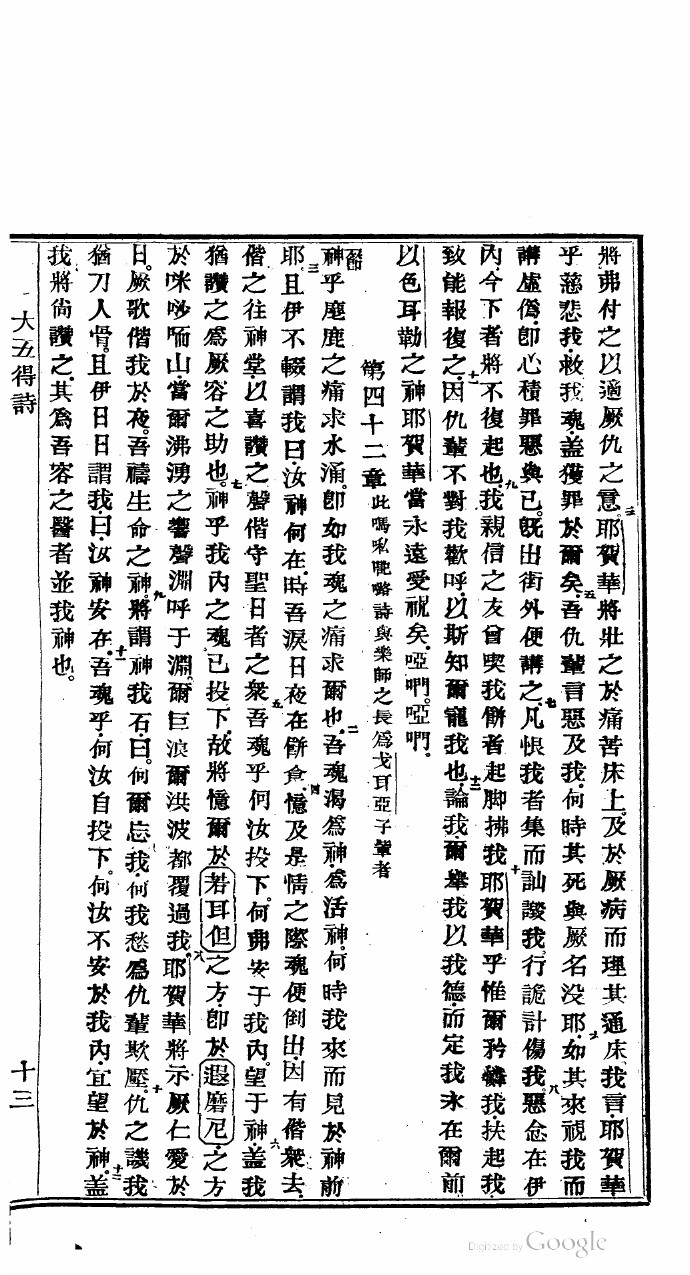 將弗付之以適厥仇之意。三耶賀華將壯之於痛苦床上。及於厥病而理其通床。四我言。耶賀華
乎慈悲我。救我魂。蓋獲罪於爾矣。五吾仇輩言惡及我。何時其死與厥名沒耶。六如其來視我而
講虛僞。卽心積罪惡與已。旣出街外便講之。七凡恨我者集而訕譭我。行詭計傷我。八惡念在伊
內。今下者將不復起也。九我親信之友曾喫我餅者起脚拂我。十耶賀華乎惟爾矜憐我。扶起我
致能報復之。十一因仇輩不對我歡呼。以斯知爾寵我也。十二論我。爾擧我以我德。而定我永在爾前
以色耳勒之神耶賀華當永遠愛祝矣。啞㗲。啞㗲。
第四十二章 此嗎㕬吔略詩與樂師之長爲戈耳亞子輩者
一節神乎。麀鹿之痛求水涌。卽如我魂之痛求爾也。二吾魂渴爲神。爲活神。何時我來而見於神前
耶。三且伊不輟謂我曰。汝神何在。時吾淚日夜在餅食。四憶及是情之際魂便倒出。因有偕衆去。
偕之往神堂。以喜讚之聲偕守聖日者之衆。五吾魂乎何汝投下。何弗安于我內。望于神。蓋我
猶讚之爲厥容之助也。六七神乎我內之魂已投下。故將憶爾於若耳但之方。卽於遐磨尼之方
於咪㖇𠵽山。當爾沸湧之響聲淵呼于淵。爾巨浪爾洪波都覆過我。八耶賀華將示厥仁愛於
日。厥歌偕我於夜。吾禱生命之神。九將謂神我石。曰。何爾忘我。何我愁爲仇輩欺壓。十仇之譏我
猶刀人骨。且伊日日謂我。曰。汝神安在。十一吾魂乎。何汝自投下。何汝不安於我內。宜望於神。十二蓋
我將尙讚之。其爲吾容之醫者並我神也。
大五得詩
十三
Digitized by Google